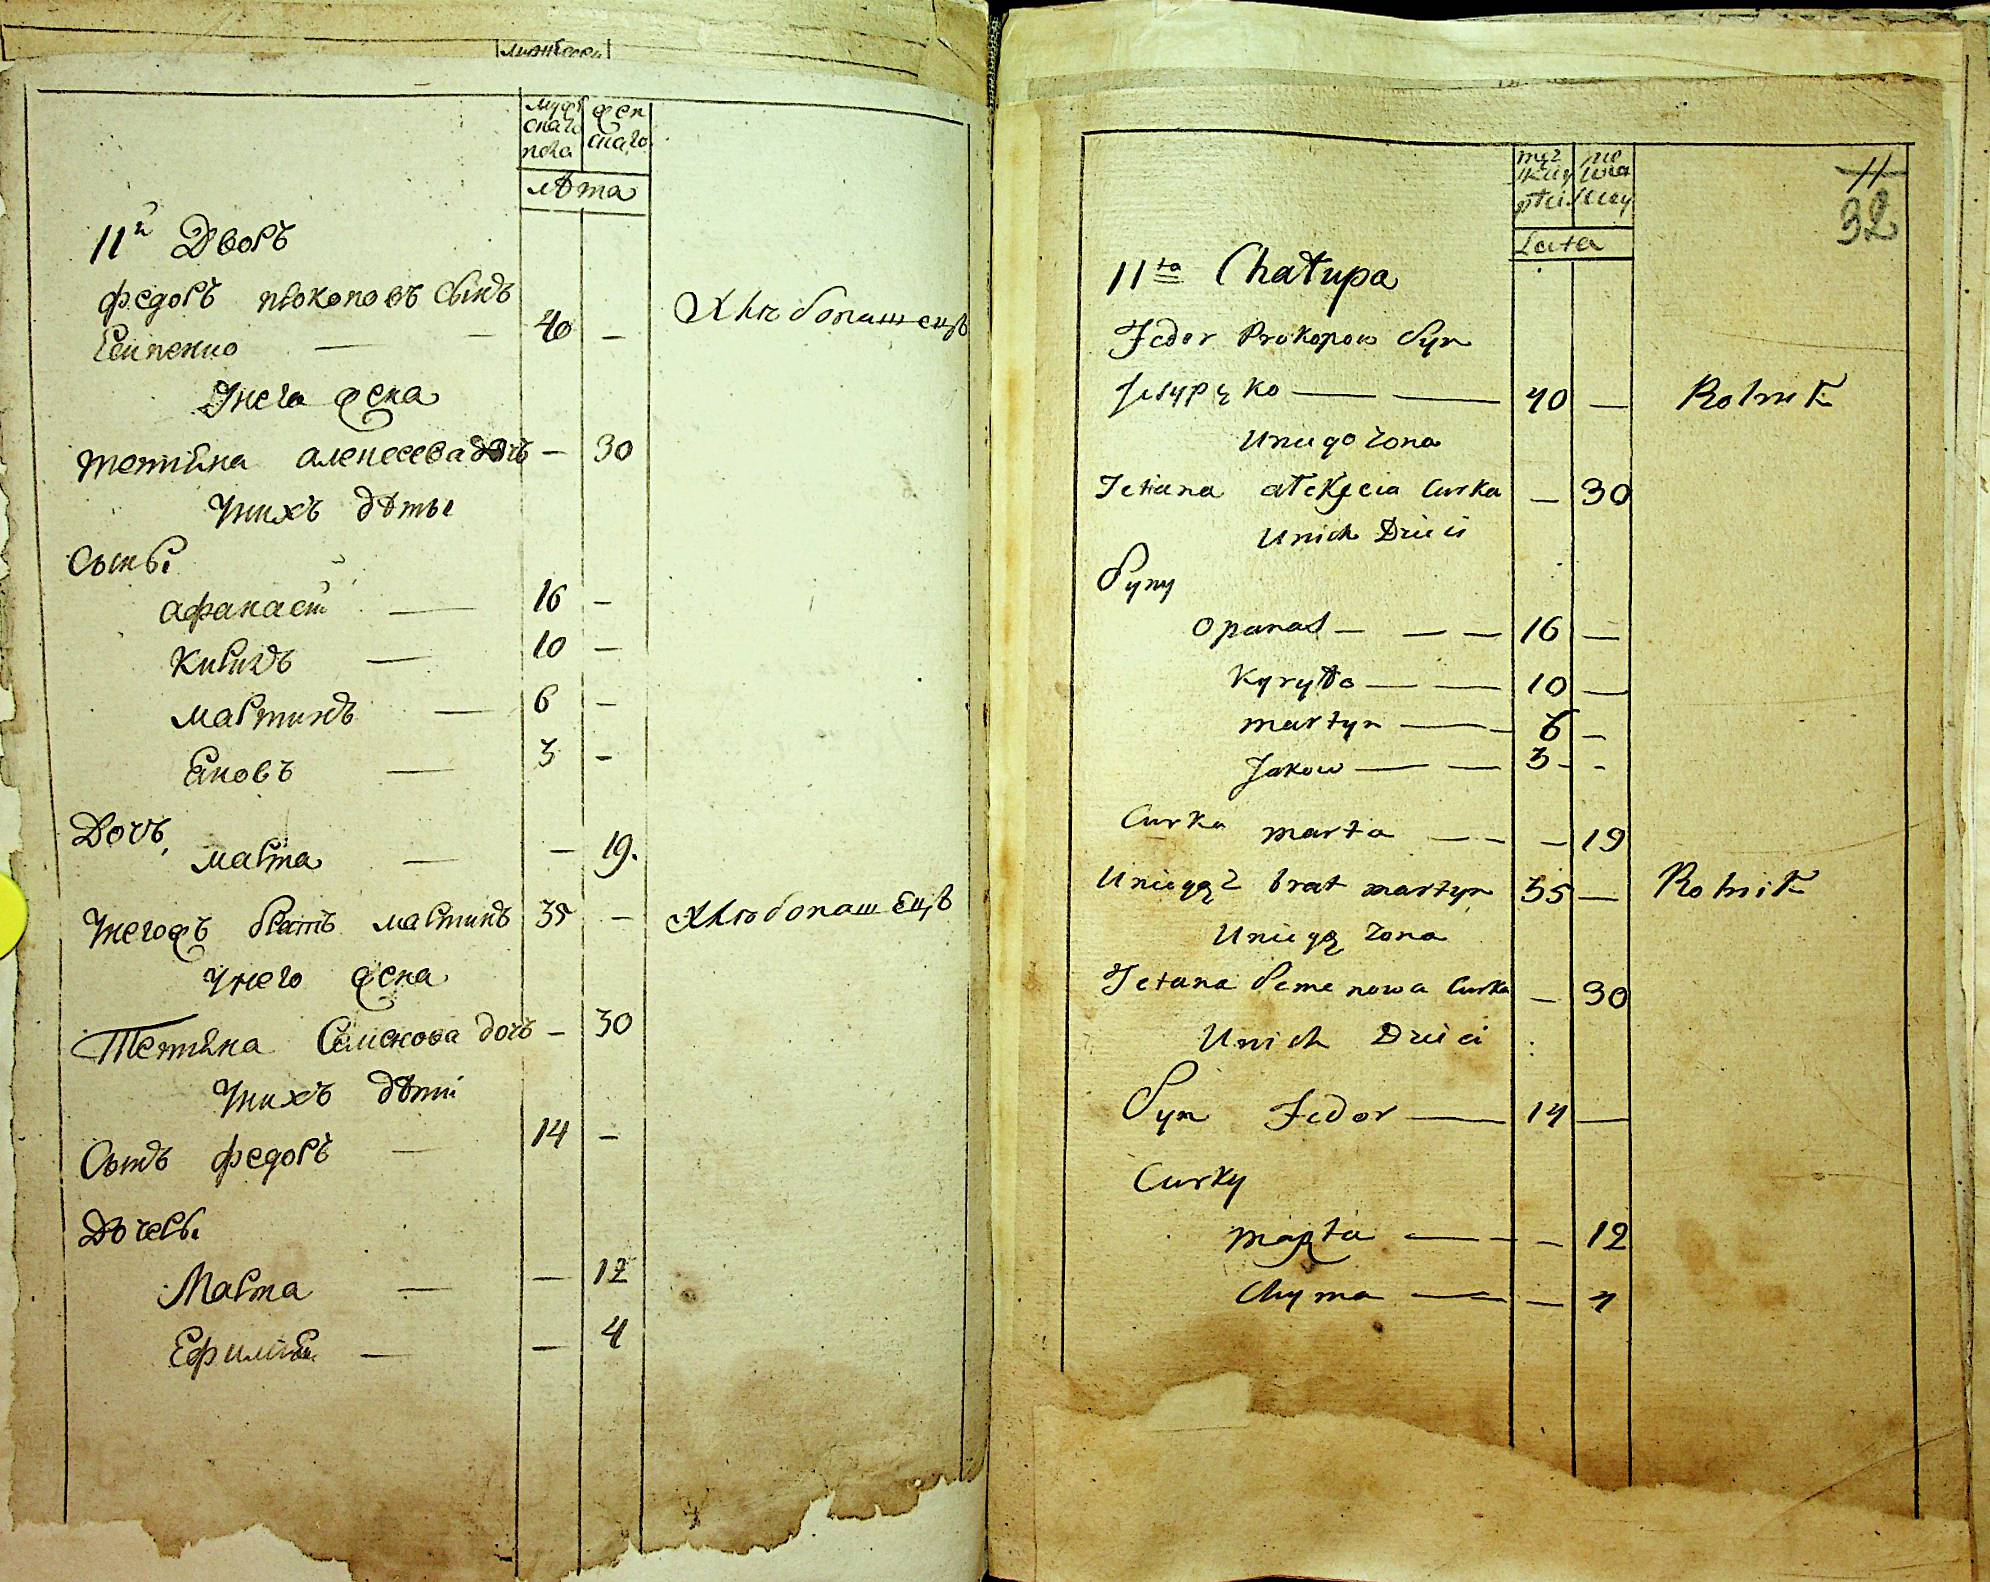 муж
скаго
пола
жен
скаго
лѣта
11й Дворъ
Федоръ прокоповъ сынъ
Есипенко — — 40 —
Хлѣбопашецъ
Унего жена
тетіяна алексеева дочь — 30
Унихъ дѣты
Сыны
афанасій — 16 —
Кирилъ — 10 —
мартинъ — 6 —
Яковъ — 3 —
Дочь
марта — — 19.
Унегожъ братъ мартинъ 35 —
Хлѣбопашецъ
Унего жена
Тетіяна Семенова дочь — 30
Унихъ дѣти
Сынъ федоръ — 14 —
Дочеры
Марта — — 12
Ефимія — — 4
męz
kiey
płci
Lata
11
32
11ta Chałupa
Fedor Prokopow Syn
Jesypęko — — 40 — Rolnik
Uniego zona
Tetiana ałekseia Curka — 30
Unich Dzieci
Syny
Opanas — — — 16 —
Kyryło — — 10 —
martyn — 6 —
Jakow — — 3 - -
Curka marta — — — 19
Uniegoz brat martyn 35 — Rolnik
Uniego zona
Tetana Semenowa Curka — 30
Unich Dzieci
Syn Fedor — 14 —
Curky
marta — — — 12
Chyma — — 4